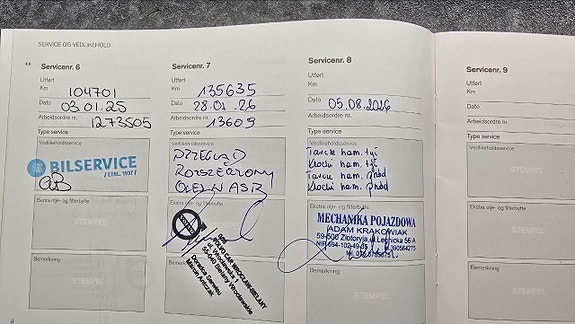 SERVICE OG VEDLIKEHOLD
Servicenr. 6
Utført
Km 104701
Dato 03.01.25
Arbeidsordre nr. 1273505
Type service
Vedlikeholdsservice
BILSERVICE
/ ETBL. 1957 /
Ekstra olje- og filterbytte
STEMPEL
Bemerkning
STEMPEL
Servicenr. 7
Utført
Km 135635
Dato 28.01.26
Arbeidsordre nr. 13609
Type service
Vedlikeholdsservice
PRZEGLĄD
ROZSZERZONY
OLEJ W ASB
Ekstra olje- og filterbytte
VOLVO CAR WROCŁAW-BIELANY
55-040 Bielany Wrocławskie
Doradca Serwisu
Marcin Antczak
Servicenr. 8
Utført
Km
Dato 05.08.2026
Arbeidsordre nr.
Type service
Vedlikeholdsservice
Tarcze ham. tył
Klocki ham. tył
Tarcze ham. przód
Klocki ham. przód
Ekstra olje- og filterbytte
MECHANIKA POJAZDOWA
ADAM KRAKOWIAK
59-500 Złotoryja, ul. Legnicka 56 A
Bemerkning
STEMPEL
Servicenr. 9
Utført
Km
Dato
Arbeidsordre nr.
Type service
Vedlikeholdsservice
STEMPEL
Ekstra olje- og filterbytte
STEMPEL
Bemerkning
STEMPEL